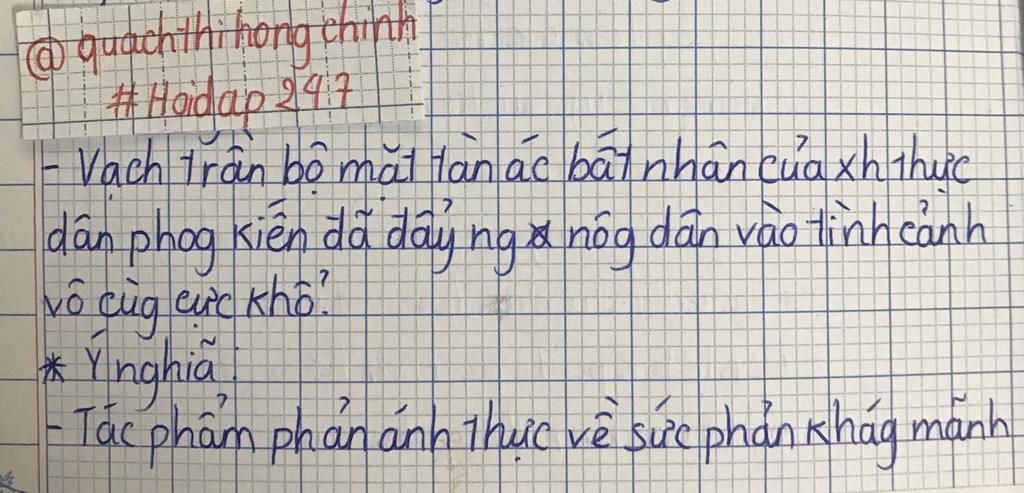 @ quachthihongchinh
# Hoidap 247
- Vạch trần bộ mặt tàn ác bất nhân của xh thực
dân phog kiến đã đẩy ng nôg dân vào tình cảnh
vô cùg cực khổ.
* Ý nghĩa:
- Tác phẩm phản ánh thực về sức phản khág mãnh